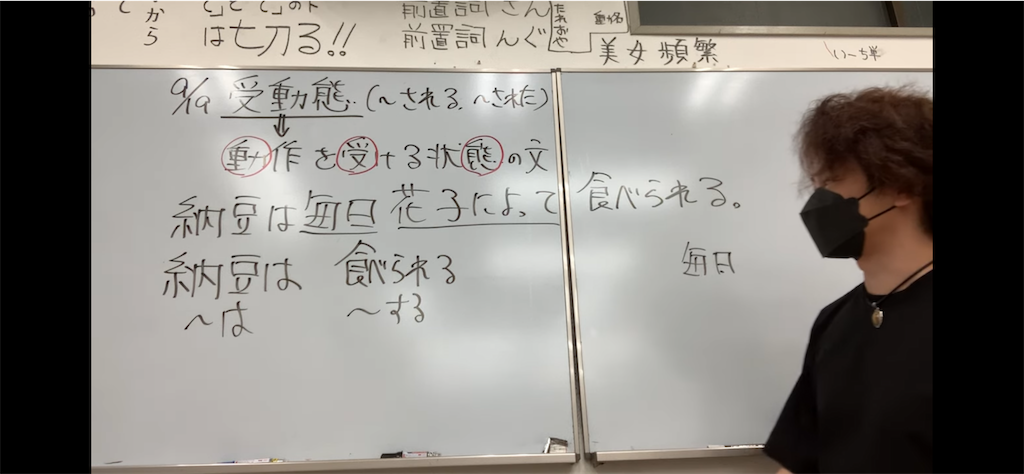 から
は七刀る!!
前直詞 さん
前置詞 んぐ
動名
美女頻繁
いーち単
9/19 受動態 (〜される、〜された)
動作を受ける状態の文
納豆は毎日 花子によって 食べられる。
納豆は 食べられる 毎日
〜は 〜する